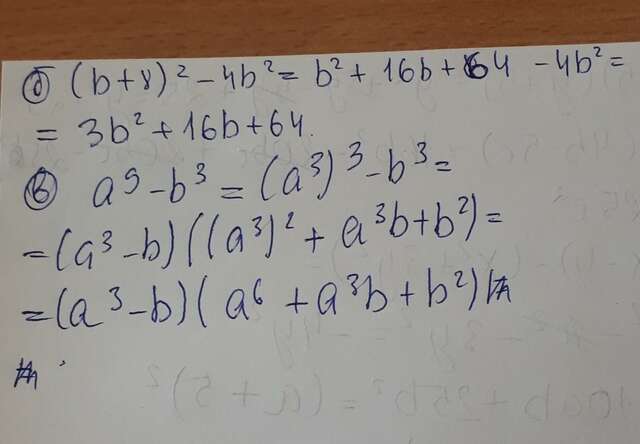 б) (b+8)² - 4b² = b² + 16b + 64 - 4b² =
= 3b² + 16b + 64.
в) a⁹ - b³ = (a³)³ - b³ =
= (a³ - b)((a³)² + a³b + b²) =
= (a³ - b)(a⁶ + a³b + b²)